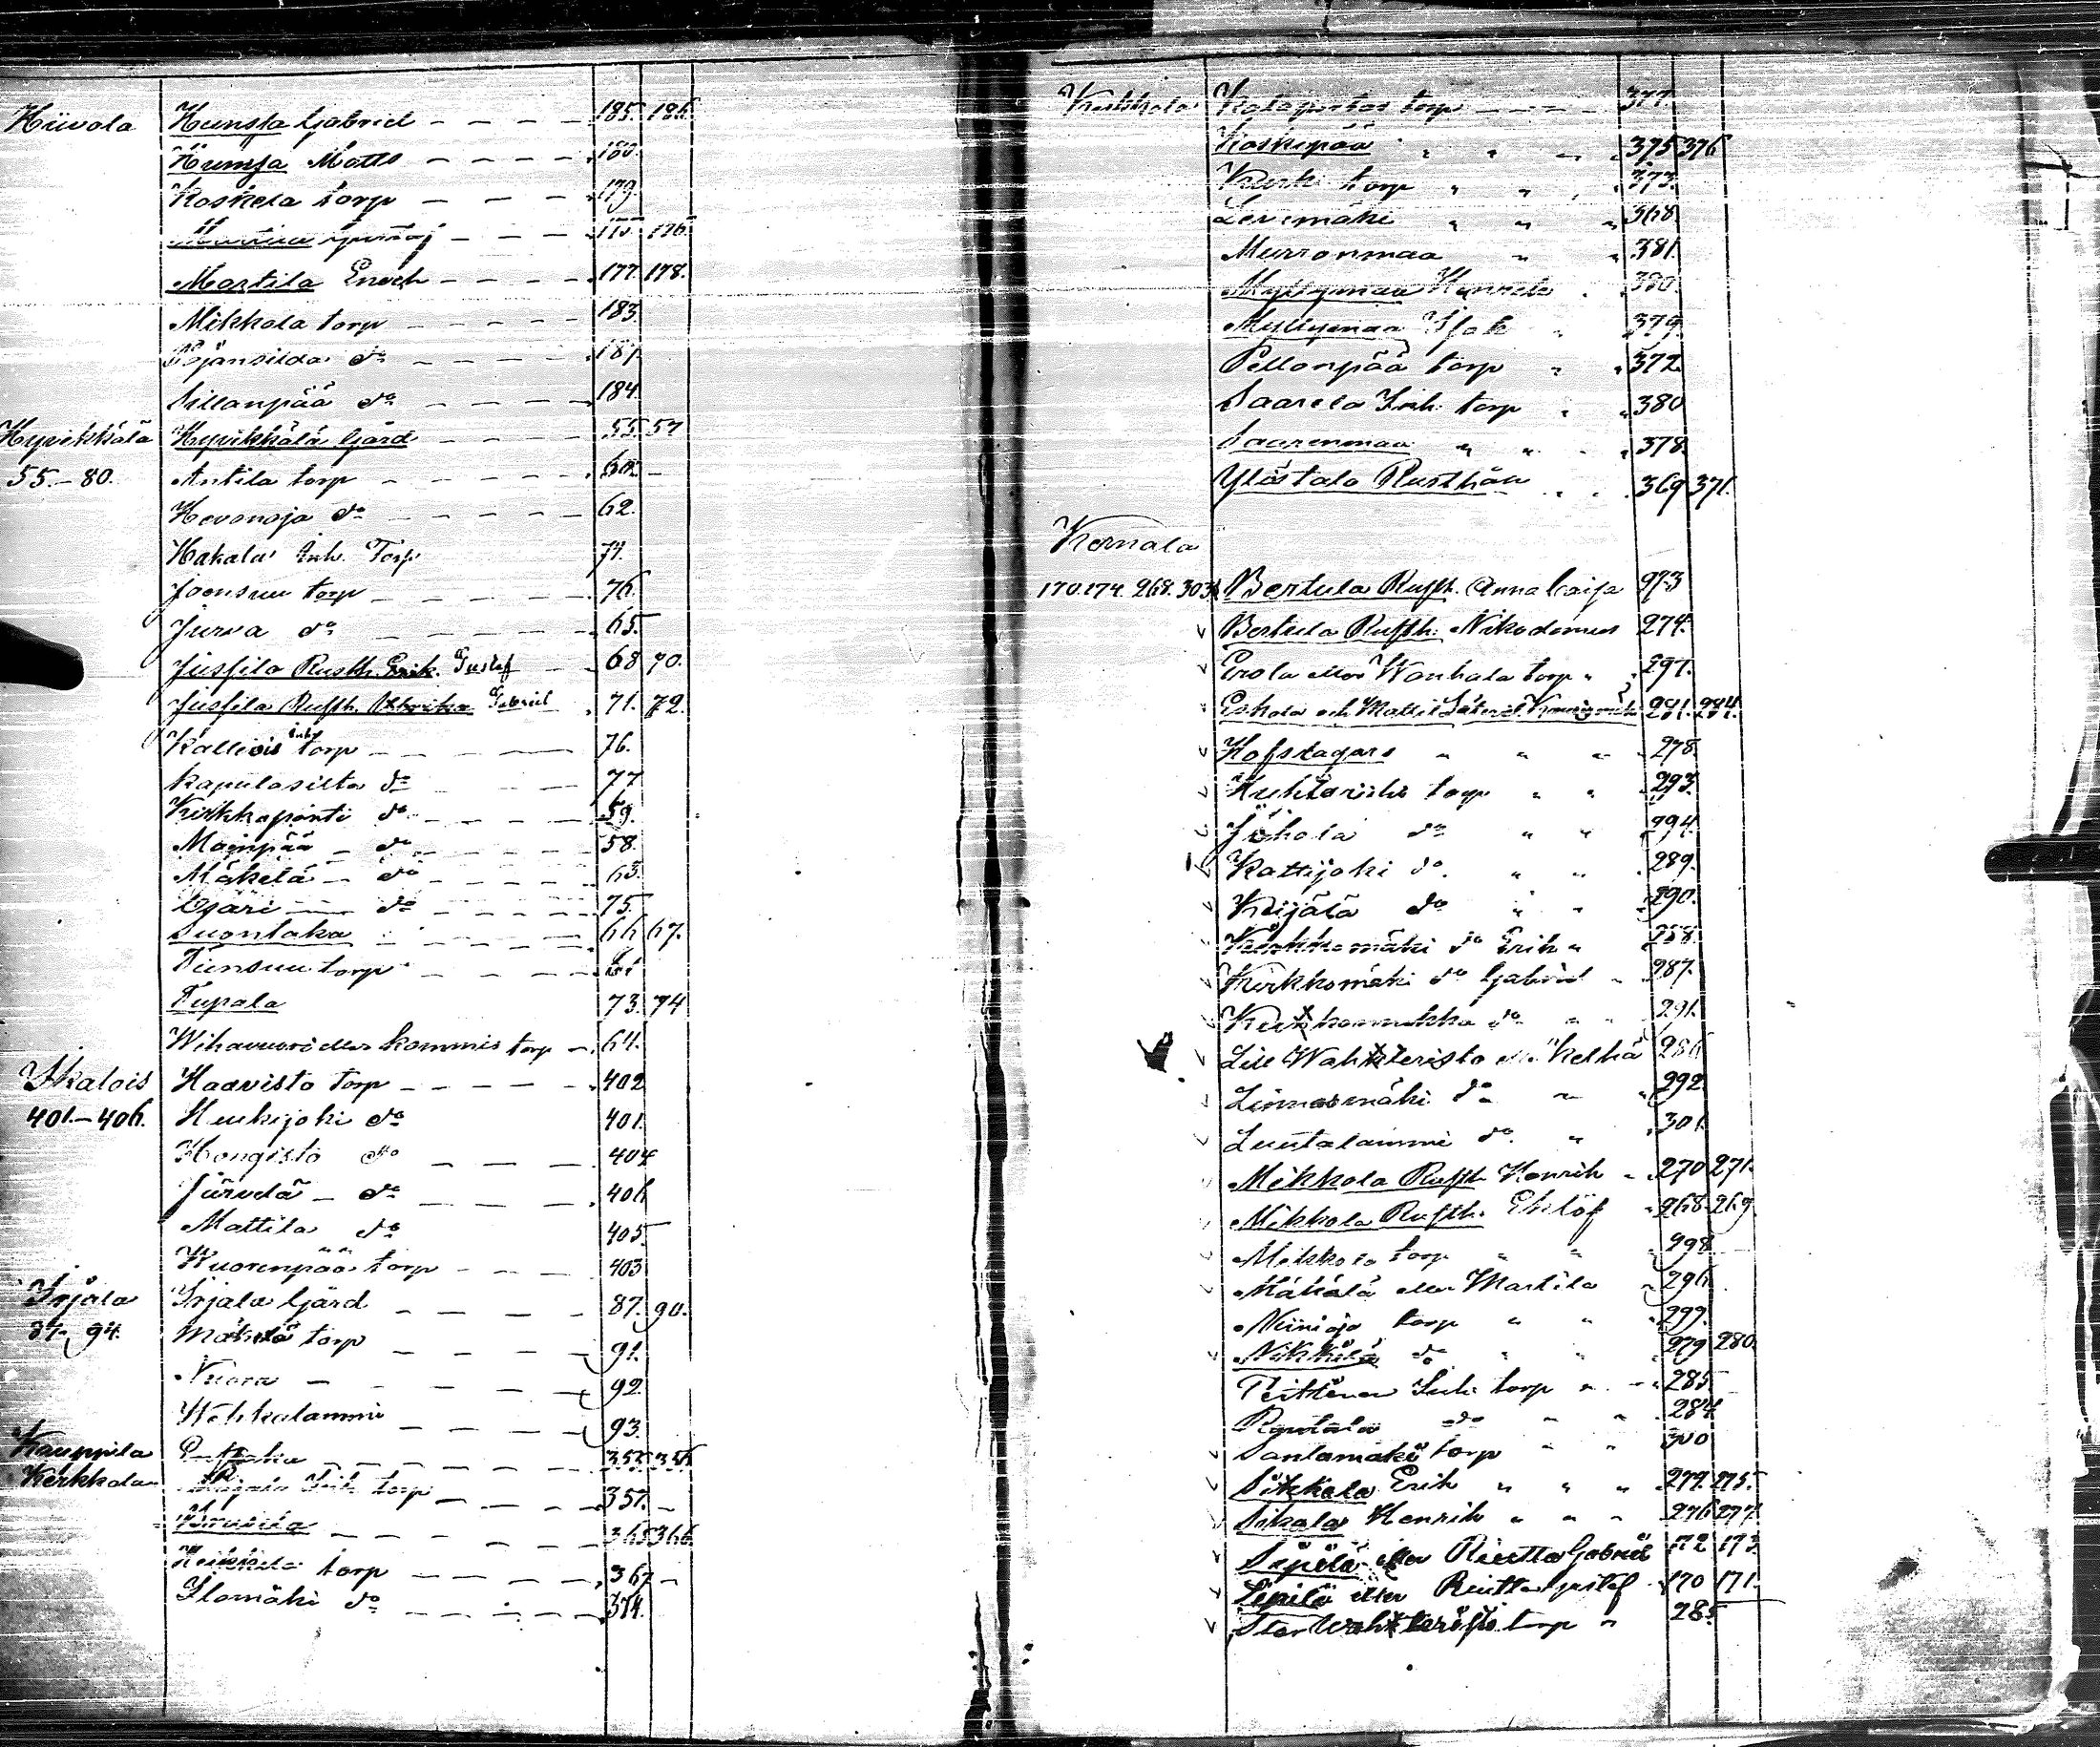 Hiivola Hunsfa Gabriel 185. 186.
Humsa Matts 180.
Koskela torp 179.
175. 176.
Martila Enoch 177. 178.
Mikkola torp 183.
do 181.
Sillanpää do 184.
Hyvikkälä Hyvikkälä Gård 55. 57
55.-80. Antila torp
Hevonoja do 62.
Hakala Inh. Torp
Joensuu torp 76.
Jurva do 65.
Jusfila Rusth. Erik. Gustaf 68 70.
Jusfila Rusth. Gabriel 71. 72.
Kalliois Inh. torp 76.
Kapulasilta do 77
Kirkkoportti do 59.
Mainpää do 58.
Mäkelä do 63.
Ojäri do 75.
Suontaka 66 67.
Tiensuu torp 61
Tupala 73. 74
Wihavuori eller Kommis torp 64.
Ikalois Haavisto torp 402
401.-406. Heukijoki do 401.
Hongisto do 404
Järvelä do 406
Mattila do 405.
Wuorenpää torp 403
Irjala Irjala Gård 87. 90.
87-94. Mäkelä torp 91.
Nuora 92.
Wehkalammi 93.
Kauppila 355 356
Kerkkola Inh torp 357.
365 366
Heikkilä torp 367
Ilomäki do 374.
Kerkkola torp 377.
Koskipää " " " 375 376
Kurki torp " " 373.
Levimäki " " " 368
Murronmaa " " 381.
Myllymaa Henrik 380.
Myllymaa Isak " 379.
Pellonpää torp " " 372.
Saarela Inh. torp " " 380
Saarenmaa " " 378.
Ylöstalo Rusthåll 369 371.
Kernala
170.174. 268. 303. Bertula Rusth. Anna Caisa 273
Bertula Rusth. Nikodemus 274.
Erola eller Wanhala torp " 297.
Eskola och Mattila Säteri 281. 284.
Hofslagars " " " 278.
torp " " 293.
Johola do " " 294.
Kattijoki do. " " 289.
Keijälä do " " 290.
Kirkkomäki do Erik " 288.
Kirkkomäki do Gabriel " 287.
do " " 291.
Lill Wahteristo eller Kelhä 286
Linnasmäki do " " 292
Luutalammi do. " 301.
Mikkola Rusth. Henrik 270 271.
Mikkola Rusth. Eklöf 268. 269.
Mikkola torp " " 298
Mäkälä eller Martila 296
Niinioja torp " " 299.
Nikkilä do " " 279 280.
Peittinen Inh. torp " 285
Rantala do " " 284
Santamäki torp " " 300
Sikkala Erik " " " 277. 275.
Sikala Henrik " " " 276 277.
Sepilä eller Rietta Gabriel 172 173.
Sepilä eller Rietta Gustaf 170 171.
Stor Wahteristo torp " 285